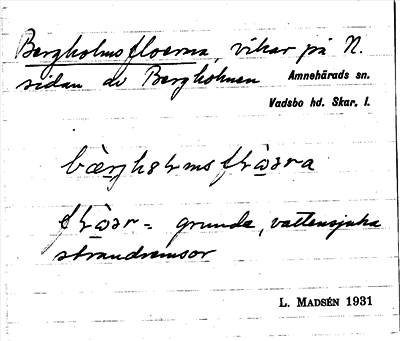 Bergholmsfloerna, vikar på N.
sidan av Bergholmen Amnehärads sn.
Vadsbo hd. Skar. l.
grunda, vattensjuka
strandremsor
L. MADSÉN 1931